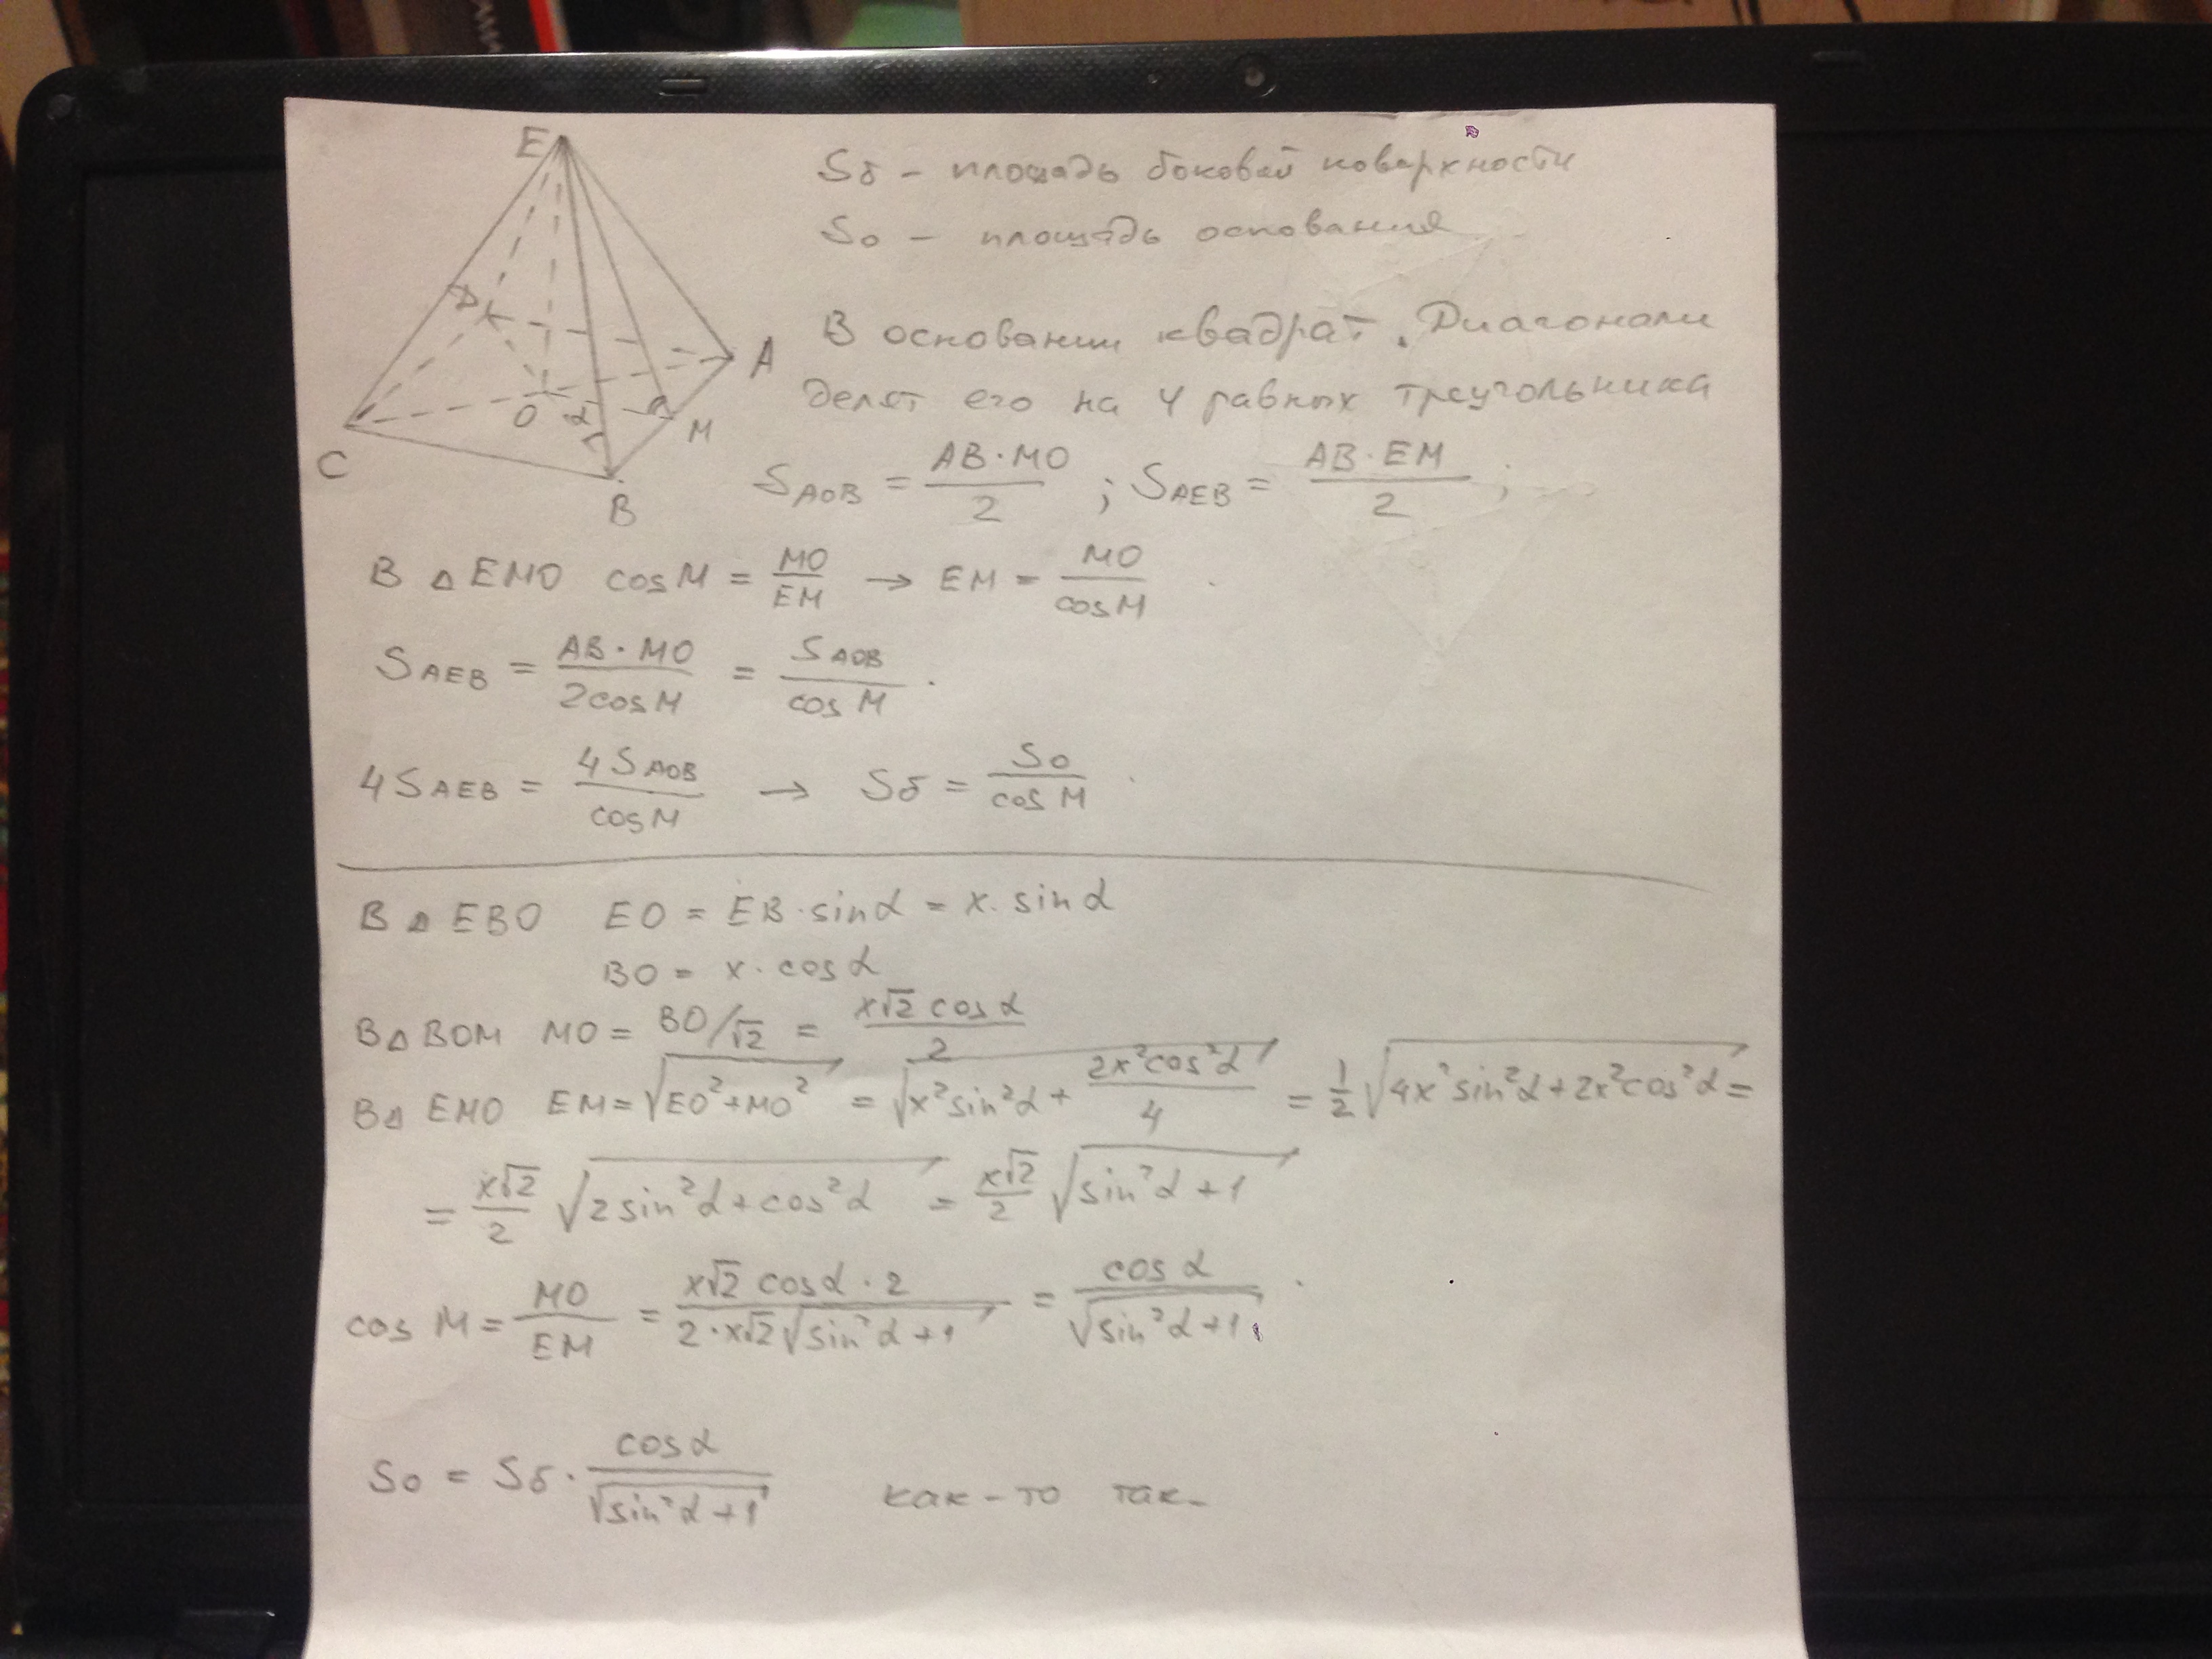 E
D
A
O
α
M
C
B
Sб - площадь боковой поверхности
So - площадь основания
В основании квадрат. Диагонали
делят его на 4 равных треугольника
S_AOB = AB·MO / 2 ; S_AEB = AB·EM / 2 ;
В Δ EMO cos M = MO / EM → EM = MO / cos M
S_AEB = AB·MO / 2cos M = S_AOB / cos M .
4S_AEB = 4S_AOB / cos M → Sб = So / cos M
В Δ EBO EO = EB·sin α = x·sin α
BO = x·cos α
В Δ BOM MO = BO/√2 = x√2 cos α / 2
В Δ EMO EM = √(EO² + MO²) = √(x² sin² α + 2x² cos² α / 4) = 1/2 √(4x² sin² α + 2x² cos² α) =
= x√2 / 2 √(2 sin² α + cos² α) = x√2 / 2 √(sin² α + 1)
cos M = MO / EM = x√2 cos α · 2 / 2·x√2 √(sin² α + 1) = cos α / √(sin² α + 1)
So = Sб · cos α / √(sin² α + 1) как-то так.